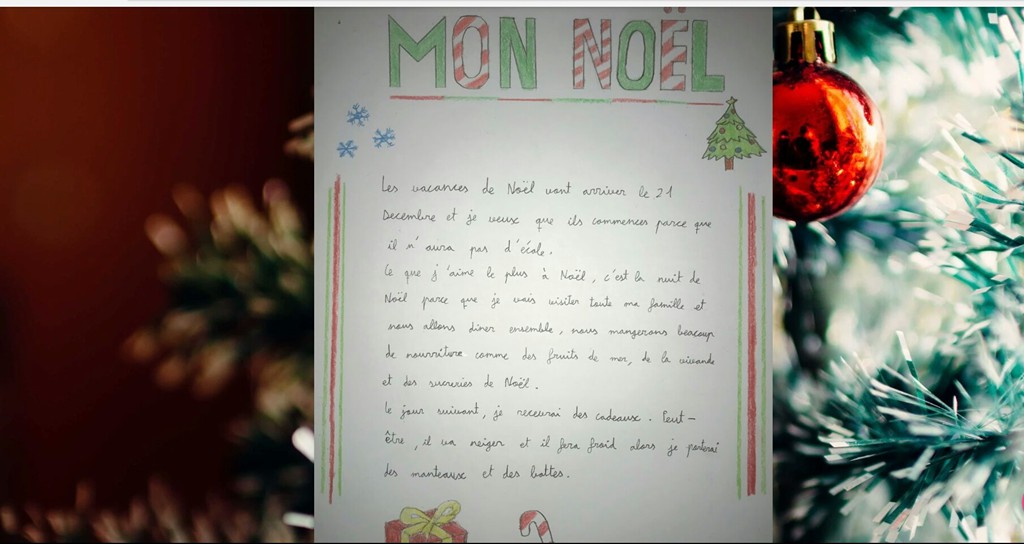 MON NOËL
Les vacances de Noël vont arriver le 21
Decembre et je veux que ils commences parce que
il n'aura pas d'école.
Ce que j'aime le plus à Noël, c'est la nuit de
Noël parce que je vais visiter toute ma famille et
nous allons dîner ensemble, nous mangerons beacoup
de nourriture comme des fruits de mer, de la viande
et des sucreries de Noël.
Le jour suivant, je recevrai des cadeaux. Peut-
être, il va neiger et il fera froid alors je porterai
des manteaux et des bottes.